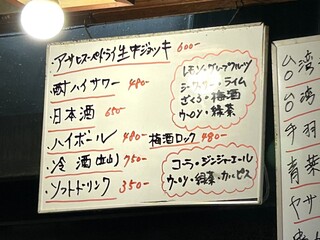 ・アサヒスーパードライ生中ジョッキ 600-
・酎ハイサワー 480-
レモン・グレープフルーツ
シークヮーサー・ライム
ざくろ・梅酒
ウーロン・緑茶
・日本酒 650-
・ハイボール 480- 梅酒ロック 480-
・冷酒 750-
・ソフトドリンク 350-
コーラ・ジンジャーエール
ウーロン・緑茶・カルピス
台湾
台湾
手羽
青菜
ヤサ